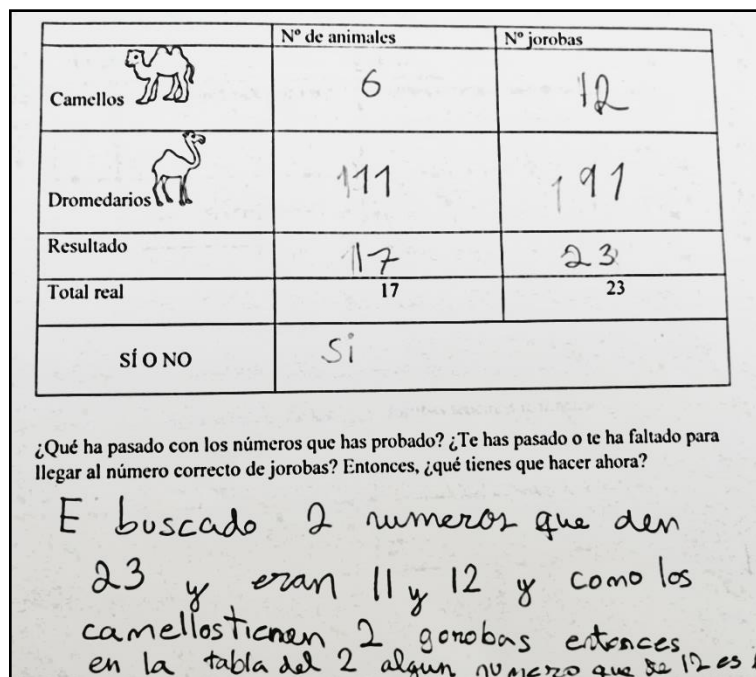 Nº de animales Nº jorobas
Camellos 6 12
Dromedarios 11
Resultado 17 23
Total real 17 23
SÍ O NO Si
¿Qué ha pasado con los números que has probado? ¿Te has pasado o te ha faltado para
llegar al número correcto de jorobas? Entonces, ¿qué tienes que hacer ahora?
E buscado 2 numeros que den
23 y eran 11 y 12 y como los
camellos tienen 2 gorobas entonces
en la tabla del 2 algun numero que de 12 es